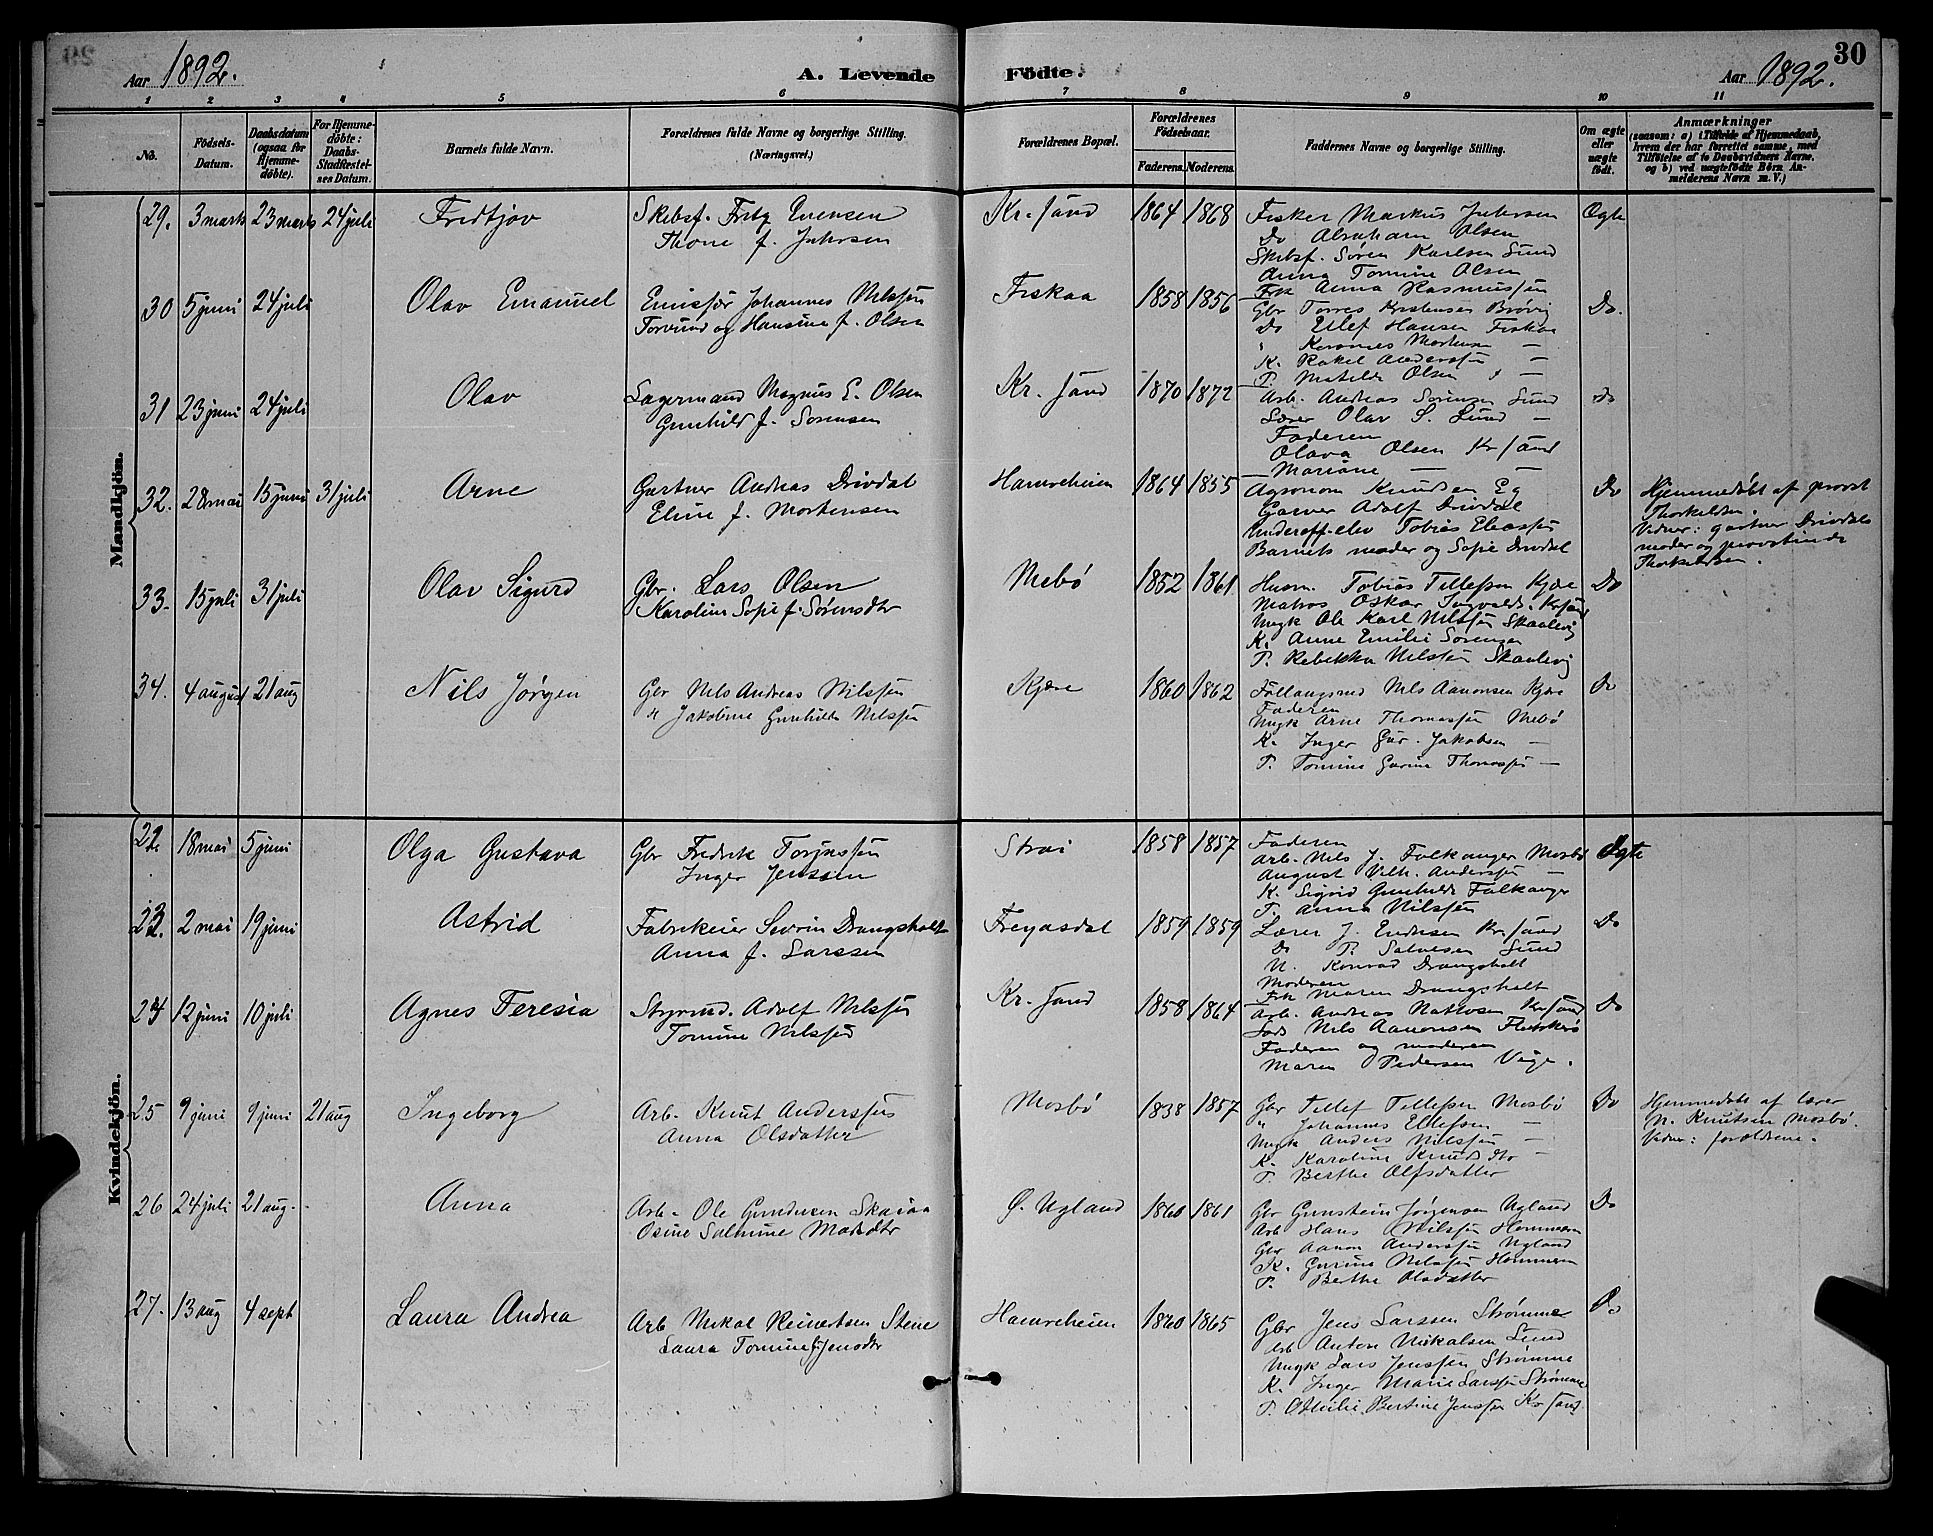 Aar 1892.
A. Levende Födte.
Aar 1892.
30
1 2 3 4 5 6 7 8 9 10 11
No.
Födsels-Datum.
Daabsdatum (ogsaa for Hjemmedöbte).
For Hjemmedöbte: Daabs-Stadfæstelses Datum.
Barnets fulde Navn.
Forældrenes fulde Navne og borgerlige Stilling. (Næringsvei.)
Forældrenes Bopæl.
Forældrenes Födselsaar.
Faderens. Moderens.
Faddernes Navne og borgerlige Stilling.
Om ægte eller uægte födt.
Anmærkninger
(saasom: a) i Tilfælde af Hjemmedaab, hvem der har forrettet samme, med Tilföielse af to Daabsvidners Navne. og b) ved uægtefödte Börn Anmelderens Navn m. V.)
Mandkjön.
29. 3 marts 23 marts 24 juli Fredtjov
Skibsf. Fritz Evensen
Thone f. Jahrsen
Kr. sand 1864 1868
Fisker Markus
Do Abraham Olsen
Skibsf. Søren Karlsen Sund
Anna Tomine Olsen
Frk Anna Rasmussen
Ægte
30 5 juni 24 juli Olav Emanuel
Emissær Johannes Nilssen
Torvund og Hansine f. Olsen
Fiskaa 1858 1856
Gbr Torres Kristensen Brøvig
Do Ellef Hansen Fiskaa
" Mortensen —
K. Rakel Anderssen —
P. Matilde Olsen —
Do.
31 23 juni 24 juli Olav
Lagermand Magnus E. Olsen
Gunhild f. Sørensen
Kr. sand 1870 1872
Arb. Andreas Sørensen Lund
Lærer Olav S. Lund —
Faderen
Olava Olsen Kr sand
Mariane — —
Do
32. 28 mai 15 juni 31 juli Arne
Gartner Andreas Drivdal
Eline f. Mortensen
Hamreheien 1864 1855
Agronom Knudsen Eg
Garver Adolf Drivdal
Underoff. elev Tobias Eleassen
Barnets moder og Sofie Drivdal
Do
Hjemmedøbt af provst
Thorkildsen.
Vidner: gartner Drivdals
moder og provstinde
Thorkildsen.
33. 15 juli 31 juli Olav Sigurd
Gbr. Lars Olsen
Karoline Sofie f. Sørensdtr
Mebø 1852 1861
Husm. Tobias Tellefsen Kjære
Matros Oskar Ingvalds. Kr sand
Ungk Ole Karl Nilssen Skaalevig
K. Anne Emilie Sørensen
P. Rebekka Nilssen Skaalevig
Do
34. 4 august 21 aug Nils Jørgen
Gbr Nils Andreas Nilssen
Jakobine Gunhilde Nilssen
Kjære 1860 1862
Nils Aanonsen Kjære
Faderen
Ungk Arne Thomassen Mebø
K. Inger Gur. Jakobsen —
P. Tomine Gurine Thomassen —
Do
Kvindekjön.
22. 18 mai 5 juni Olga Gustava
Gbr Fredrik Torjussen
Inger Jenssen
Strai 1858 1857
Faderen
Arb. Nils J. Falkanger Mosbø
August Vilh. Anderssen —
K. Sigrid Gunhilde Falkanger
P. Anna Nilssen
Ægte
23. 2 mai 19 juni Astrid
Fabrikeier Severin Drangsholt
Anna f. Larssen
Freyasdal 1859 1859
Lærer J. Endresen Kr. sand
Do P. Salvesen Lund
U. Konrad Drangsholt
Moderen
Frk Maren Drangsholt
Do
24 12 juni 10 juli Agnes Teresia
Styrmd. Adolf Nilssen
Tomine Nilssen
Kr. sand 1858 1864
Arb. Andreas Mathisen Kr sand
Lods Nils Aanonsen Flekkerø
Faderen og moderen
Maren Pedersen Vige.
Do
25 9 juni 9 juni 21 aug Ingeborg
Arb. Knut Anderssen
Anna Olsdatter
Mosbø 1838 1857
Gbr Tellef Tellefsen Mosbø
" Johannes Ellefsen —
Ungk Anders Nilssen —
K. Karoline Knudsdtr —
P. Berthe Olfsdatter
Do
Hjemmedøbt af lærer
N. Knutsen Mosbø.
Vidner: forældrene.
26 24 juli 21 aug. Anna
Arb. Ole Gundersen Skaiaa
Osine Salmine Madsdtr
Ø. Ugland 1860 1861
Gbr Gunstein Jørgensen Ugland
Arb Hans Nilssen Hommeren
Gbr Aanon Anderssen Ugland
K. Gurine Nilssen Hommeren
P. Berthe Olsdatter
Do
27. 13 aug 4 sept Laura Andrea
Arb Mikal Reinertsen Stene
Laura Tomine f. Jensdtr
Hamreheien 1860 1865
Gbr Jens Larssen Strømme
Arb Anton Mikalsen Lund
Ungk Lars Jenssen Strømme
K. Inger Marie Larssen Strømme
P. Othilie Bertine Jenssen Kr sand.
Do